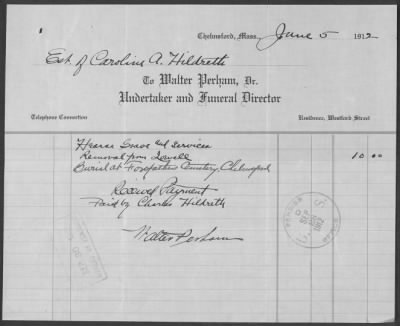 Chelmsford, Mass., June 5 1912
Est. of Caroline A. Hildreth
To Walter Perham, Dr.
Undertaker and Funeral Director
Telephone Connection Residence, Westford Street
Hearse and Services
Removal from Lowell
Burial at Forefathers Cemetery, Chelmsford 10 00
Received Payment
Paid by Charles Hildreth
Walter Perham